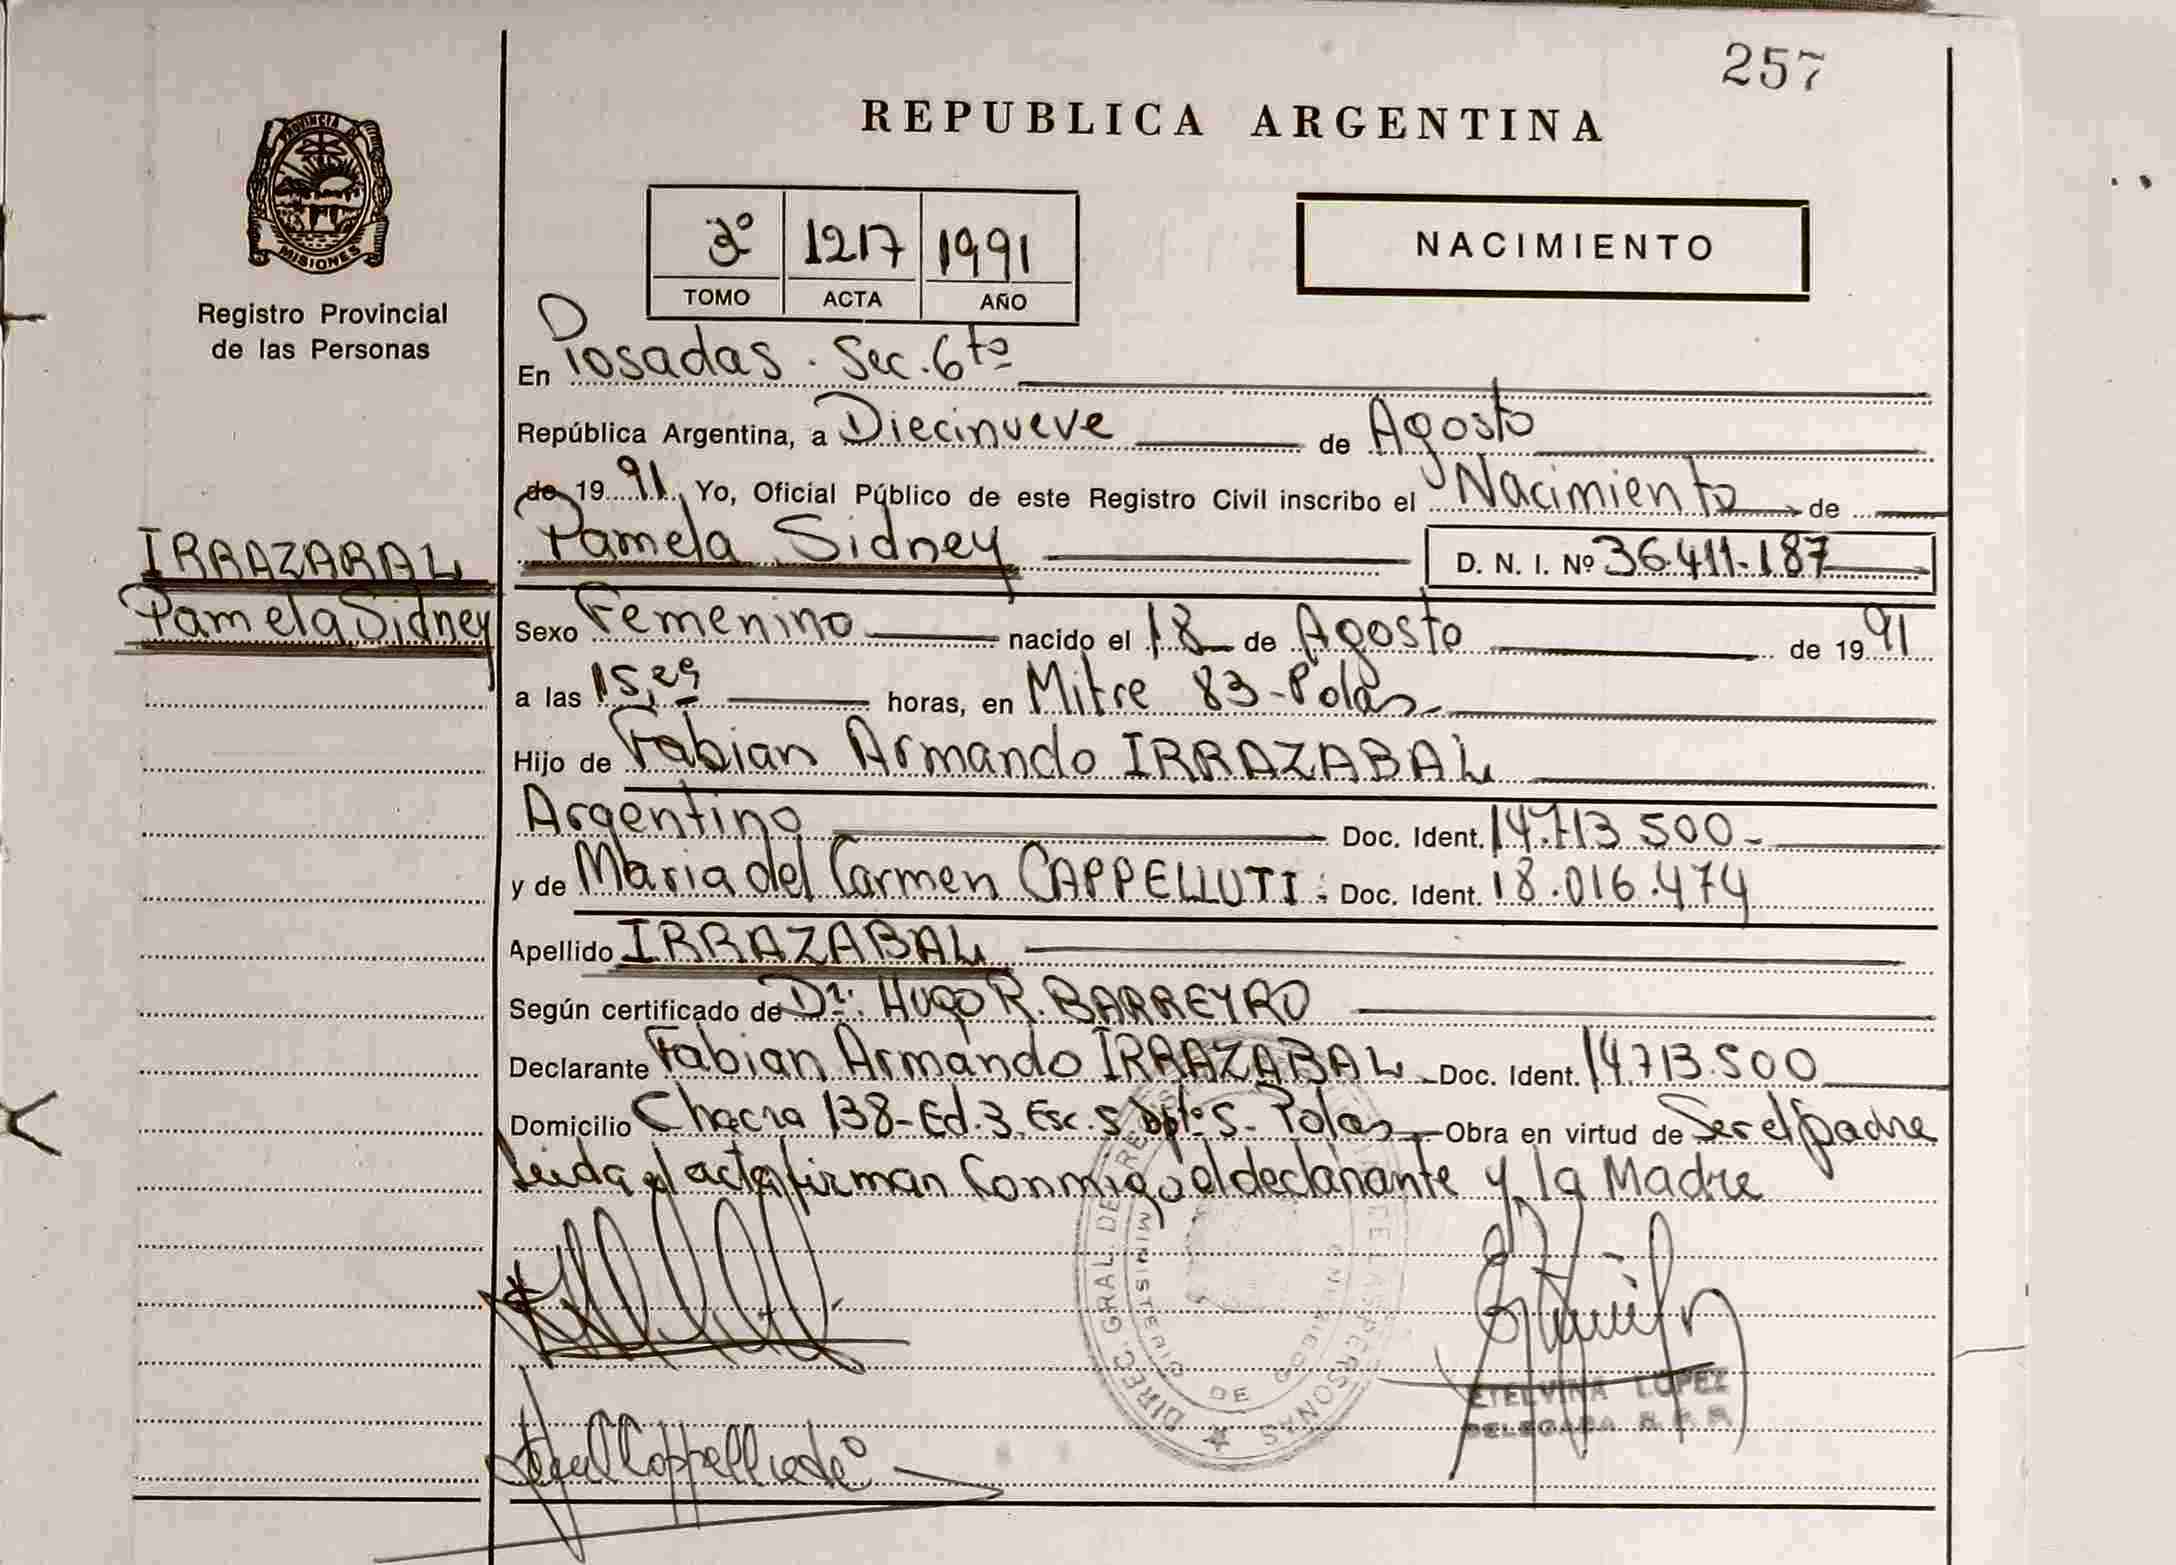 257
REPUBLICA ARGENTINA
PROVINCIA DE
MISIONES
Registro Provincial
de las Personas
3º 1217 1991
TOMO ACTA AÑO
NACIMIENTO
En Posadas. Sec. 6ta
República Argentina, a Diecinueve de Agosto
de 1991, Yo, Oficial Público de este Registro Civil inscribo el Nacimiento de
IRRAZABAL
Pamela Sidney
Pamela Sidney D. N. I. Nº 36.411.187
Sexo Femenino nacido el 18 de Agosto de 1991
a las 15,29 horas, en Mitre 83 - Pdas
Hijo de Fabian Armando IRRAZABAL
Argentino Doc. Ident. 14.713.500-
y de Maria del Carmen CAPPELLUTI: Doc. Ident. 18.016.474
Apellido IRRAZABAL
Según certificado de Dr: HUGO R. BARREYRO
Declarante Fabian Armando IRRAZABAL Doc. Ident. 14.713.500
Domicilio Chacra 138-Ed.3.Esc.5 Dpto S- Pdas Obra en virtud de Ser el padre
Leida el acta firman Conmigo el declarante y la Madre
DIREC. GRAL. DE REG DE LAS PERSONAS
MINISTERIO DE
ETELVINA LOPEZ
DELEGADA R.P.P.